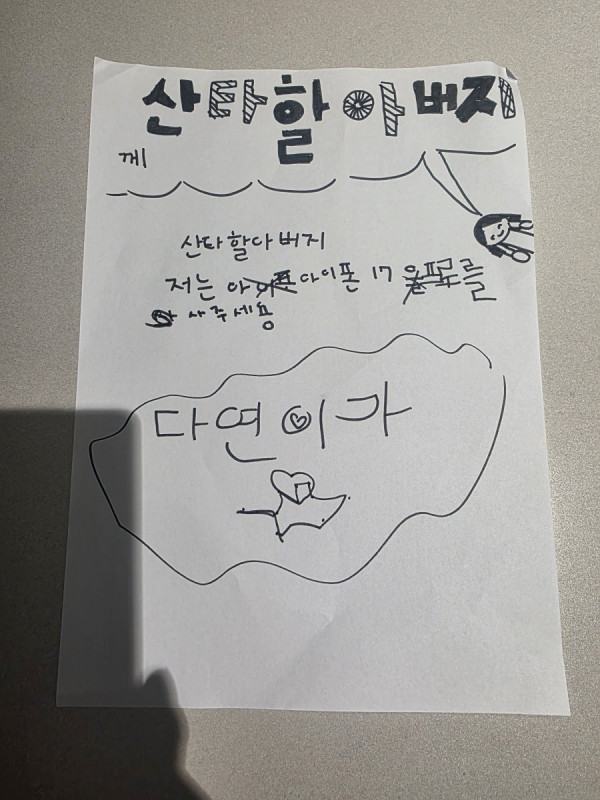 산타할아버지
께
산타할아버지
저는 아이폰 17 프로를
사주세용
다연이가